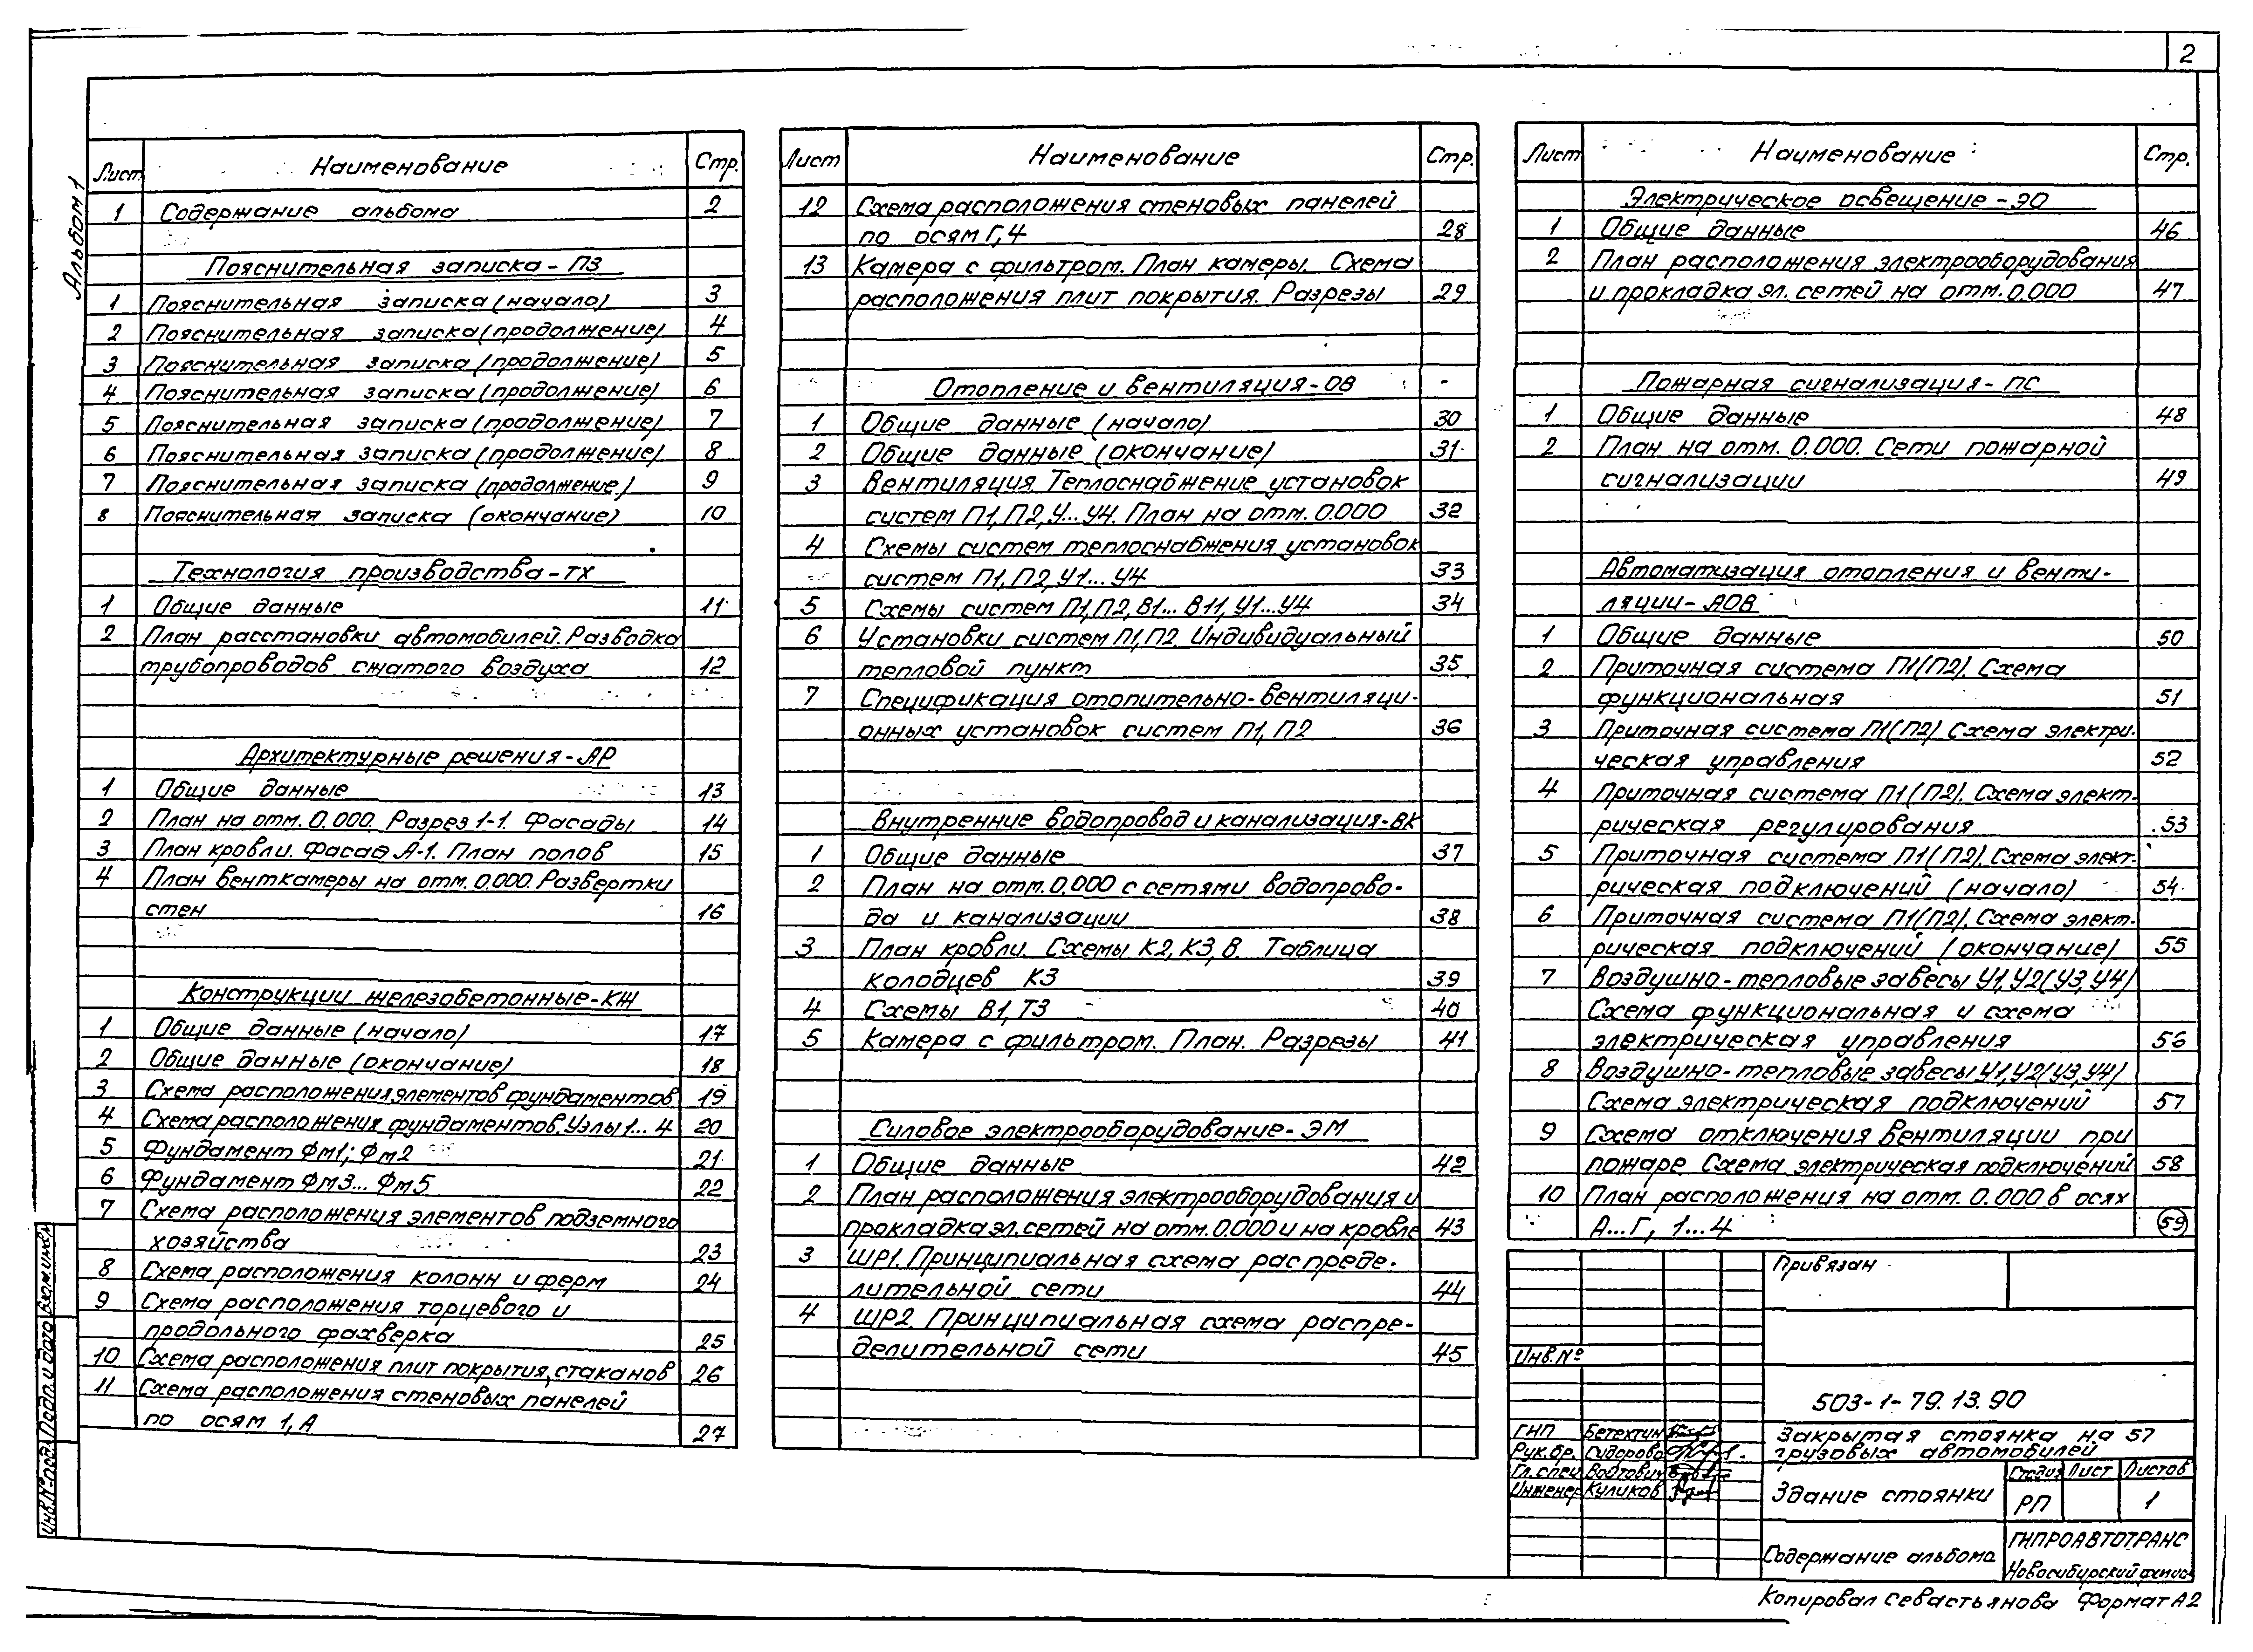 2
Альбом 1
Лист Наименование Стр.
1 Содержание альбома 2
Пояснительная записка - ПЗ
1 Пояснительная записка (начало) 3
2 Пояснительная записка (продолжение) 4
3 Пояснительная записка (продолжение) 5
4 Пояснительная записка (продолжение) 6
5 Пояснительная записка (продолжение) 7
6 Пояснительная записка (продолжение) 8
7 Пояснительная записка (продолжение) 9
8 Пояснительная записка (окончание) 10
Технология производства - ТХ
1 Общие данные 11
2 План расстановки автомобилей. Разводка
трубопроводов сжатого воздуха 12
Архитектурные решения - АР
1 Общие данные 13
2 План на отм. 0.000. Разрез 1-1. Фасады 14
3 План кровли. Фасад А-1. План полов 15
4 План венткамеры на отм. 0.000. Развертки
стен 16
Конструкции железобетонные - КЖ
1 Общие данные (начало) 17
2 Общие данные (окончание) 18
3 Схема расположения элементов фундаментов 19
4 Схема расположения фундаментов. Узлы 1...4 20
5 Фундамент Фм1; Фм2 21
6 Фундамент Фм3...Фм5 22
7 Схема расположения элементов подземного
хозяйства 23
8 Схема расположения колонн и ферм 24
9 Схема расположения торцевого и
продольного фахверка 25
10 Схема расположения плит покрытия, стаканов 26
11 Схема расположения стеновых панелей
по осям 1, А 27
Лист Наименование Стр.
12 Схема расположения стеновых панелей
по осям Г, 4 28
13 Камера с фильтром. План камеры. Схема
расположения плит покрытия. Разрезы 29
Отопление и вентиляция - ОВ
1 Общие данные (начало) 30
2 Общие данные (окончание) 31
3 Вентиляция. Теплоснабжение установок
систем П1, П2, У...У4. План на отм. 0.000 32
4 Схемы систем теплоснабжения установок
систем П1, П2, У1...У4 33
5 Схемы систем П1, П2, В1...В11, У1...У4 34
6 Установки систем П1, П2. Индивидуальный
тепловой пункт 35
7 Спецификация отопительно-вентиляци-
онных установок систем П1, П2 36
Внутренние водопровод и канализация - ВК
1 Общие данные 37
2 План на отм. 0.000 с сетями водопрово-
да и канализации 38
3 План кровли. Схемы К2, К3, В. Таблица
колодцев К3 39
4 Схемы В1, Т3 40
5 Камера с фильтром. План. Разрезы 41
Силовое электрооборудование - ЭМ
1 Общие данные 42
2 План расположения электрооборудования и
прокладка эл. сетей на отм. 0.000 и на кровле 43
3 ШР1. Принципиальная схема распреде-
лительной сети 44
4 ШР2. Принципиальная схема распре-
делительной сети 45
Лист Наименование Стр.
Электрическое освещение - ЭО
1 Общие данные 46
2 План расположения электрооборудования
и прокладка эл. сетей на отм. 0.000 47
Пожарная сигнализация - ПС
1 Общие данные 48
2 План на отм. 0.000. Сети пожарной
сигнализации 49
Автоматизация отопления и венти-
ляции - АОВ
1 Общие данные 50
2 Приточная система П1 (П2). Схема
функциональная 51
3 Приточная система П1 (П2) Схема электри-
ческая управления 52
4 Приточная система П1 (П2). Схема элект-
рическая регулирования 53
5 Приточная система П1 (П2). Схема элект-
рическая подключений (начало) 54
6 Приточная система П1 (П2). Схема элект-
рическая подключений (окончание) 55
7 Воздушно-тепловые завесы У1, У2 (У3, У4)
Схема функциональная и схема
электрическая управления 56
8 Воздушно-тепловые завесы У1, У2 (У3, У4)
Схема электрическая подключений 57
9 Схема отключения вентиляции при
пожаре Схема электрическая подключений 58
10 План расположения на отм. 0.000 в осях
А...Г, 1...4 59
Привязан
Инв. №
503-1-79.13.90
ГИП Бетехтин
Рук. бр. Сидорова
Гл. спец Войтович
Инженер Куликов
Закрытая стоянка на 57
грузовых автомобилей
Здание стоянки
Стадия Лист Листов
РП 1
Содержание альбома
ГИПРОАВТОТРАНС
Новосибирский филиал
Копировал Севастьянова Формат А2
Инв. № подл. Подп. и дата Взам. инв. №